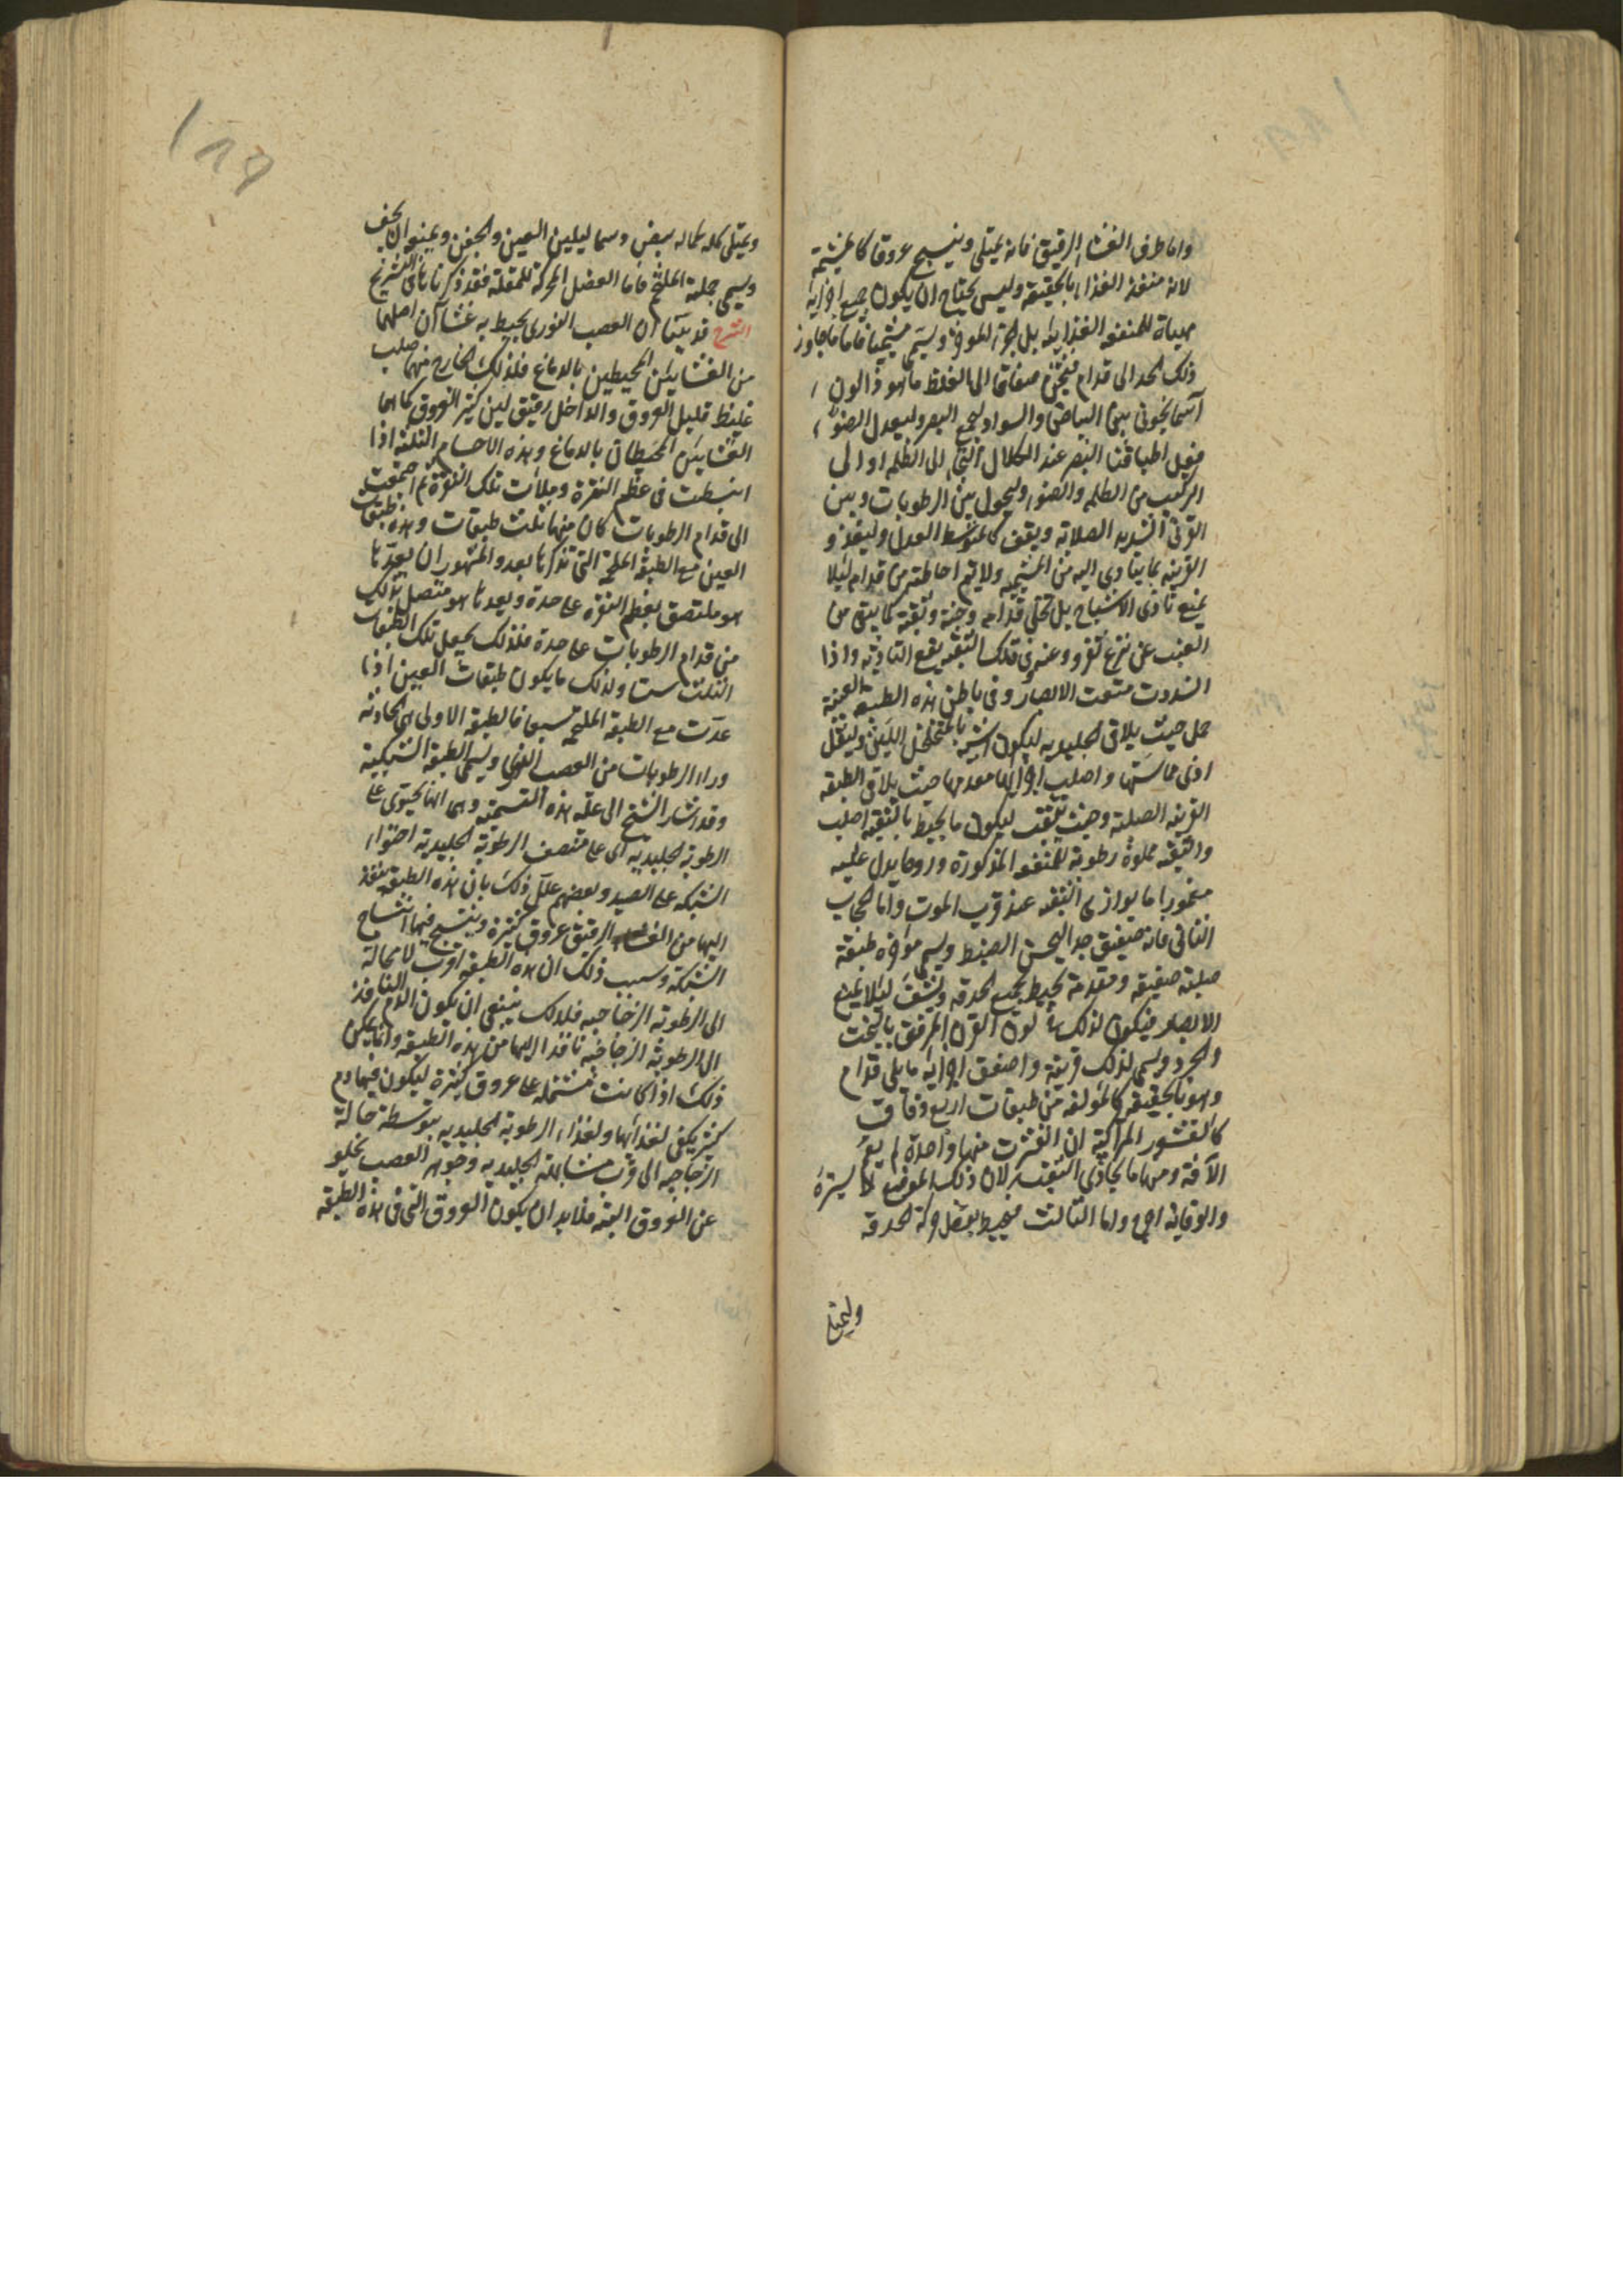 واما طرف الغشاء الرقيق فانه يمتلى وينسج عروقا كالمشيمة
لانه منفذ الغذاء بالحقيقة وليس يحتاج ان يكون جميع اجزايه
مهياة للمنفعه الغذايه بل الجزء الموخر ويسمى مشيميا فاما ما جاوز
ذلك الحد الى قدام فيثخن صفاقا الى الغلظ ما هو ذا لون
آسمانجونى بين البياض والسواد ليجمع البصر وليعدل الضوء
فعل اطباقنا البصر عند الكلال التجاء الى الظلمه او الى
التركيب من الظلمه والضوء وليحول بين الرطوبات وبين
القرنى الشديد الصلابة ويقف كالمتوسط العدل وليغذو
القرنيه بما يتادى اليه من المشيميه ولا يتم احاطته من قدام ليلا
يمنع تادى الاشباح بل يخلى قدامه فرجة وثقبة كما يبقى من
العنب عن نزع ثفروق عنه وفى تلك الثقبه يقع التاديه واذا
انسدت منعت الابصار وفى باطن هذه الطبقه العنبيه
خمل حيث يلاقى الجليديه ليكون اشبه بالمتخلخل اللين وليقل
اذى مماسته واصلب اجزائها مقدمها حيث يلاقى الطبقه
القرنيه الصلبة وحيث يتثقب ليكون ما يحيط بالثقبه اصلب
والثقبه مملوة رطوبة للمنفعه المذكورة وروحا يدل عليه
ضمور ما يوازى الثقبه عند قرب الموت واما الحجاب
الثانى فانه صفيق جدا ليحسن الضبط ويسمى موخره طبقة
صلبة صفيقة ومقدمه يحيط بجميع الحدقه ويشف ليلا يمنع
الابصار فيكون لذلك فى لون القرن المرقق بالنحت
والجرد ويسمى لذلك قرنية واضعف اجزائه ما يلى قدام
وهو بالحقيقه كالمؤلفه من طبقات اربع رقاق
كالقشور المتراكبة ان انقشرت منها واحدة لم يعم
الآفة ومنها ما يحاذى الثقبة لان ذلك الموضع الى الستر
والوقاية احوج واما الثالث فيختلط بعضل حركة الحدقه
ويمتلى
ويمتلى كله لحما ابيض دسما ليلين العين والجفن ويمنعها ان يجف
ويسمى جملته الملتحم فاما العضل المحركة للمقلة فقد ذكرناها فى التشريح
الشرح قد بينا ان العصب النورى يحيط به غشاآن اصلهما
من الغشايين المحيطين بالدماغ فلذلك الخارج منهما صلب
غليظ قليل العروق والداخل رقيق لين كثير العروق كما هما
الغشايين المحيطان بالدماغ وهذه الاجسام الثلثة اذا
انبسطت فى عظم النقرة وملأت تلك النقرة ثم اجتمعت
الى قدام الرطوبات كان منها ثلث طبقات وهذه طبقات
العين مع الطبقة الملتحمة التى نذكرها بعد والمشهور ان يعد ما
هو ملتصق بعظم النقرة على حدة ويعد ما هو متصل بذلك
من قدام الرطوبات على حدة فلذلك يجعل تلك الطبقات
الثلث ستا ولذلك ما يكون طبقات العين اذا
عدت مع الطبقة الملتحمة سبعا فالطبقة الاولى هى الحادثه
وراء الرطوبات من العصب النورى ويسمى الطبقة الشبكية
وقد اشار الشيخ الى علة هذه التسمية وهى انها يحتوى على
الرطوبة الجليديه الى على منتصف الرطوبة الجليدية احتواء
الشبكه على الصيد وبعضهم علل ذلك بان هذه الطبقه ينفذ
اليها من الغشاء الرقيق عروق كثيرة وينتسج فيها انتساج
الشبكة وسبب ذلك ان هذه الطبقه اقرب لا محالة
الى الرطوبه الزجاجيه فلذلك ينبغى ان يكون الدم النافذ
الى الرطوبة الزجاجيه نافذا اليها من هذه الطبقه وانما يمكن
ذلك اذا كانت مشتملة على عروق كثيرة ليكون فيها دم
كثير يكفى لغذائها ولغذاء الرطوبة الجليديه بتوسط حالة
الزجاجيه الى قرب مشابهة الجليديه وجوهر العصب يخلو
عن العروق البته فلا بد ان يكون العروق التى فى هذه الطبقه